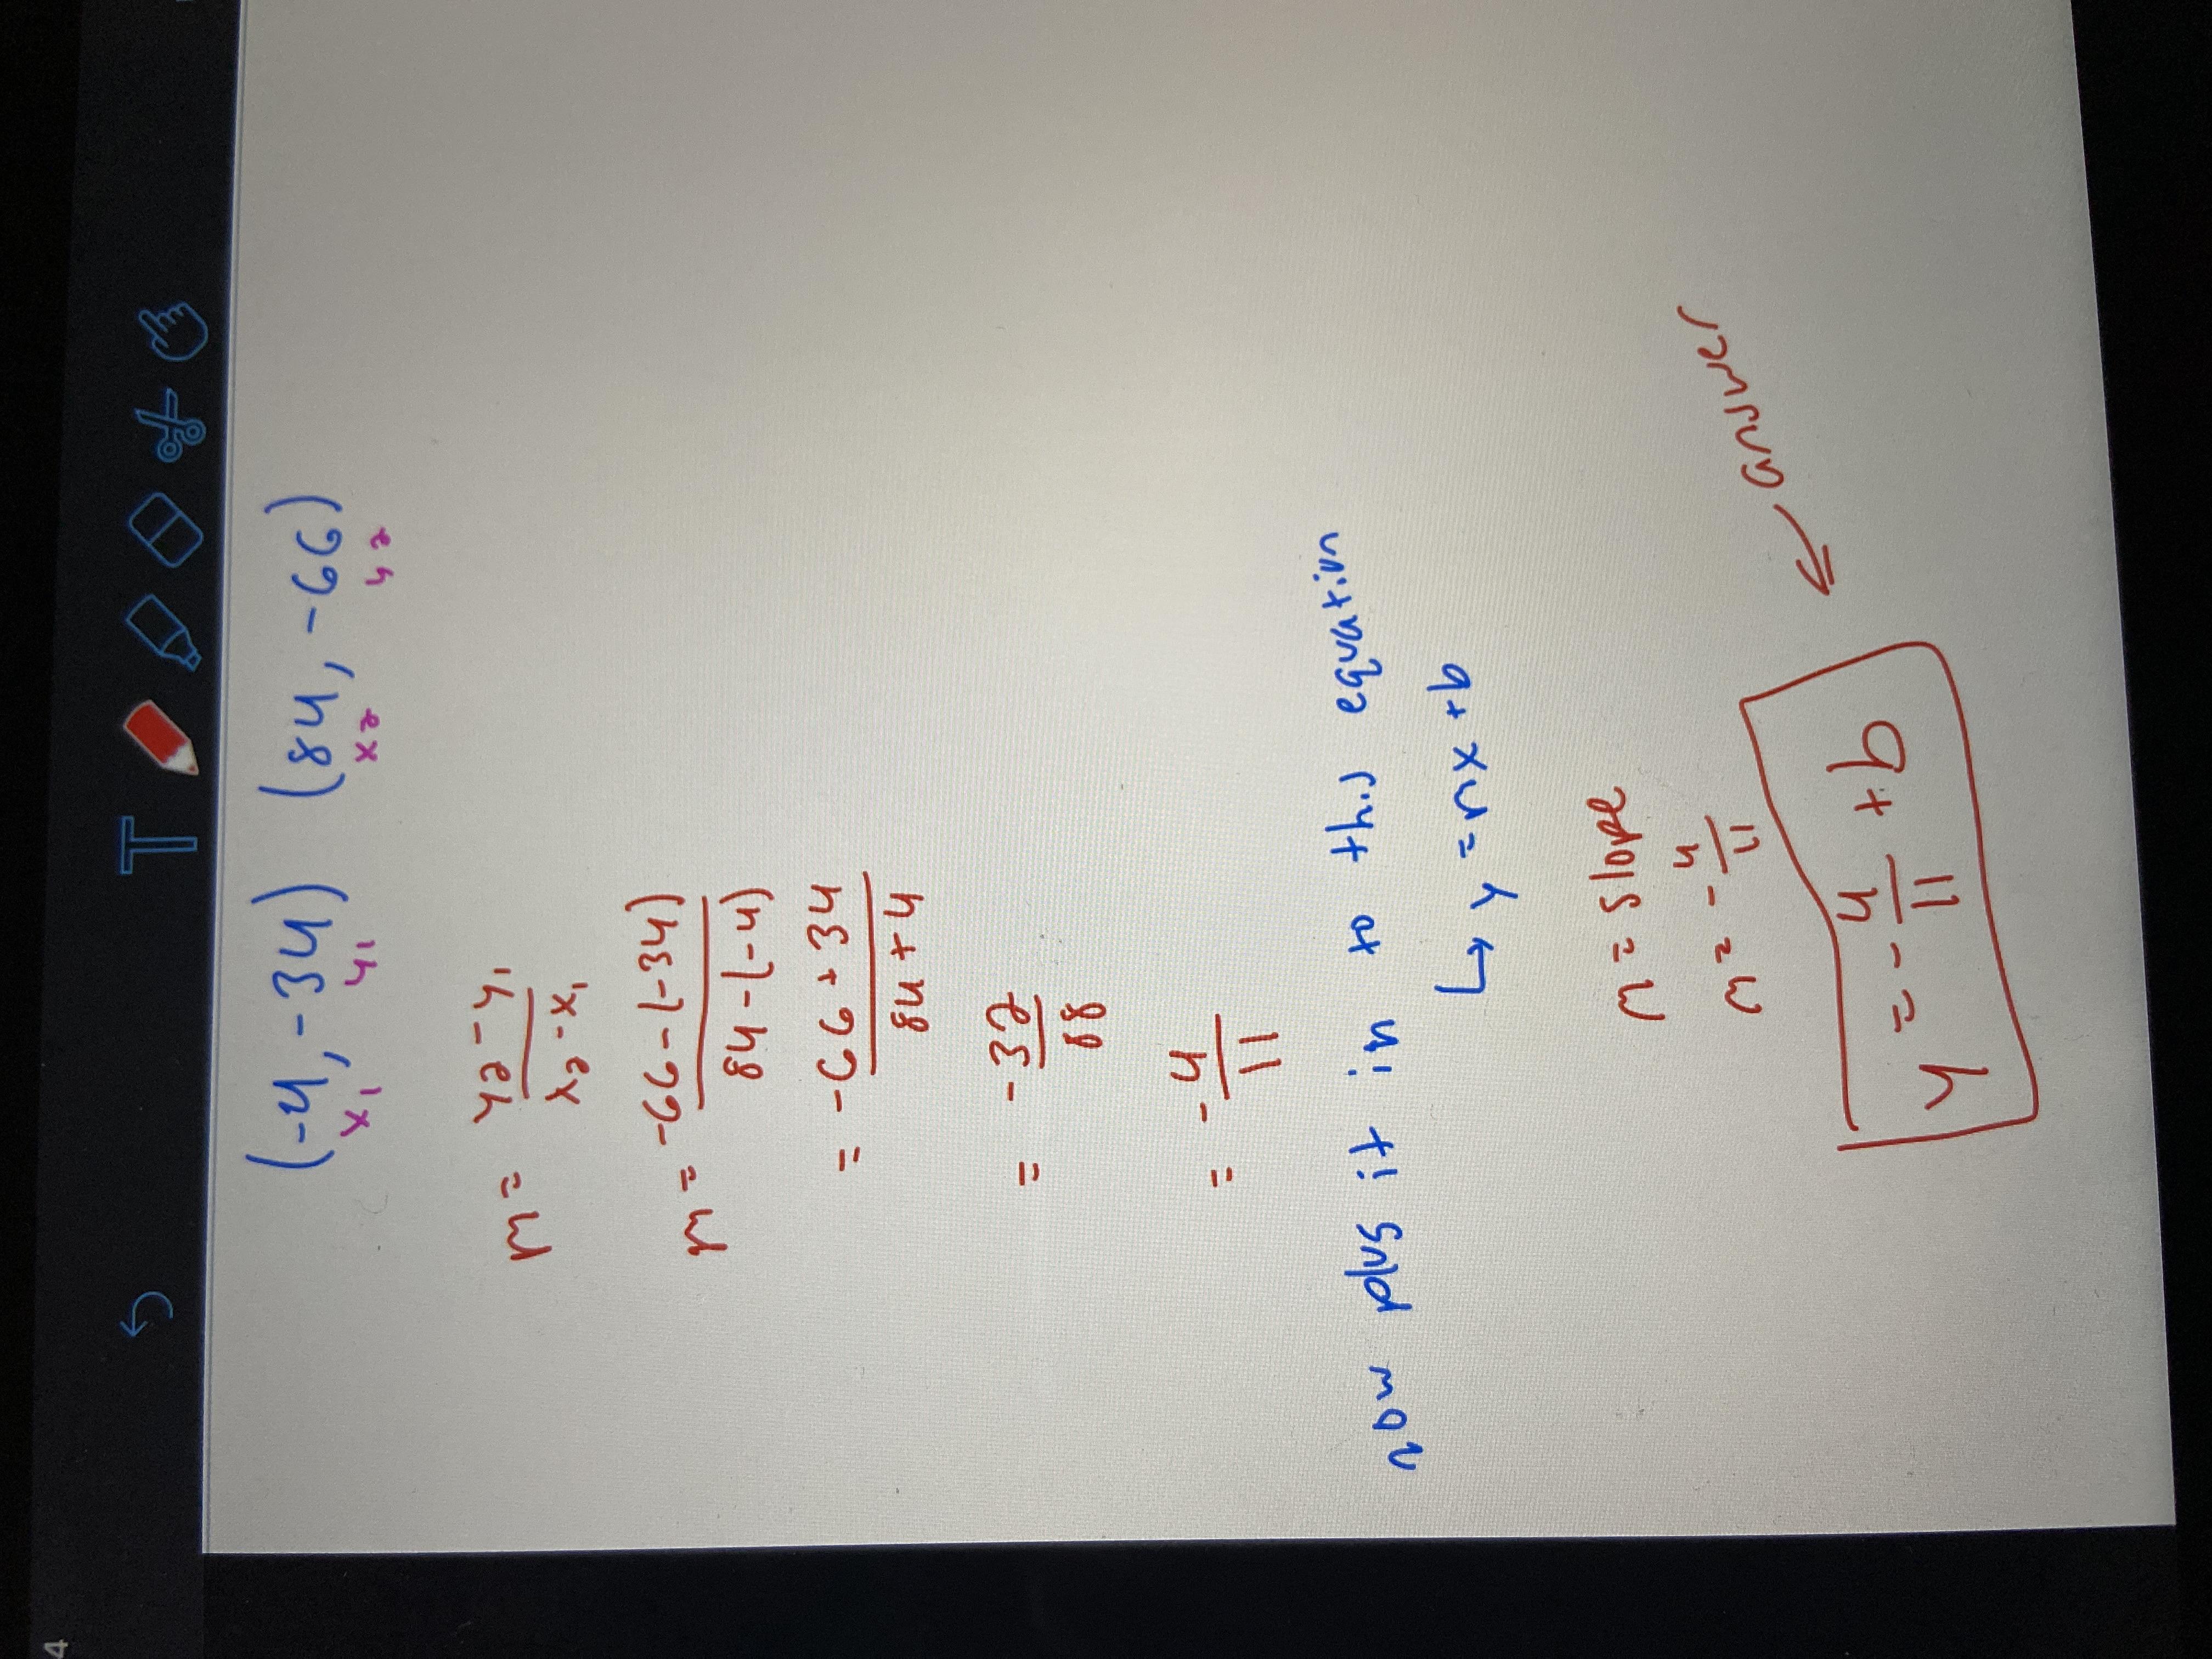 4
T
(-4, -34) (84, -66)
x1 y1 x2 y2
M = y2 - y1
x2 - x1
M = -66 - (-34)
84 - (-4)
= -66 + 34
84 + 4
= -32
88
= - 4
11
now plug it in to this equation
↳ y = mx + b
M = slope
M = - 4
11
answer
y = - 4 + b
11